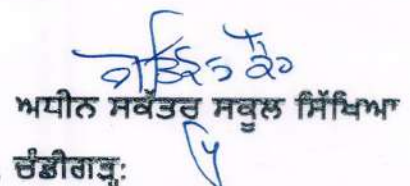 ਅਧੀਨ ਸਕੱਤਰ ਸਕੂਲ ਸਿੱਖਿਆ
ਚੰਡੀਗੜ੍ਹ: